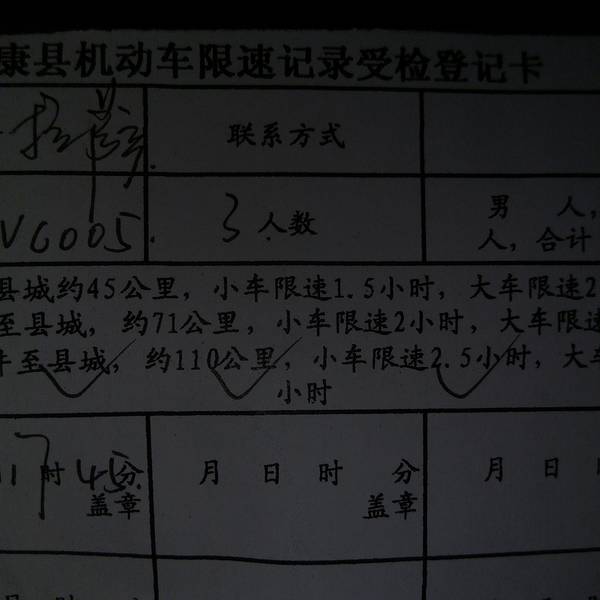 康县机动车限速记录受检登记卡
联系方式
VC005. 3 人数 男 人,
人,合计
县城约45公里,小车限速1.5小时,大车限速2
至县城,约71公里,小车限速2小时,大车限速
至县城,约110公里,小车限速2.5小时,大车
小时
17时45分 月 日 时 分 月 日
盖章 盖章